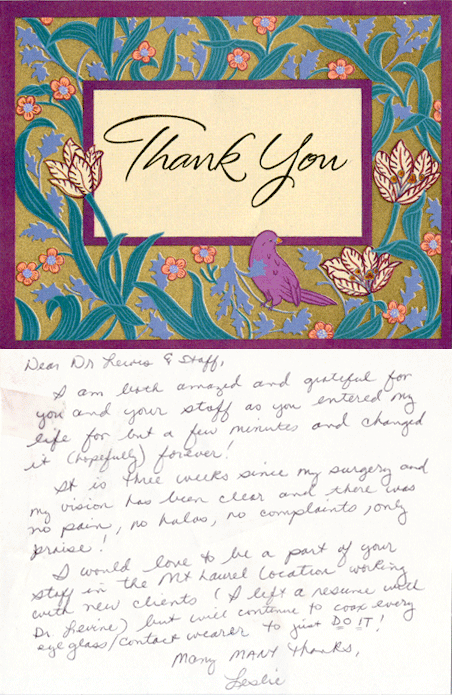 Thank You
Dear Dr Lewis & Staff,
I am both amazed and grateful for
you and your staff as you entered my
life for but a few minutes and changed
it (hopefully) forever!
It is three weeks since my surgery and
my vision has been clear and there was
no pain, no halos, no complaints, only
praise!
I would love to be a part of your
staff in the Mt Laurel Location working
with new clients (I left a resume with
Dr. Levine) but will continue to coax every
eyeglass/contact wearer to just DO IT!
Many MANY Thanks,
Leslie